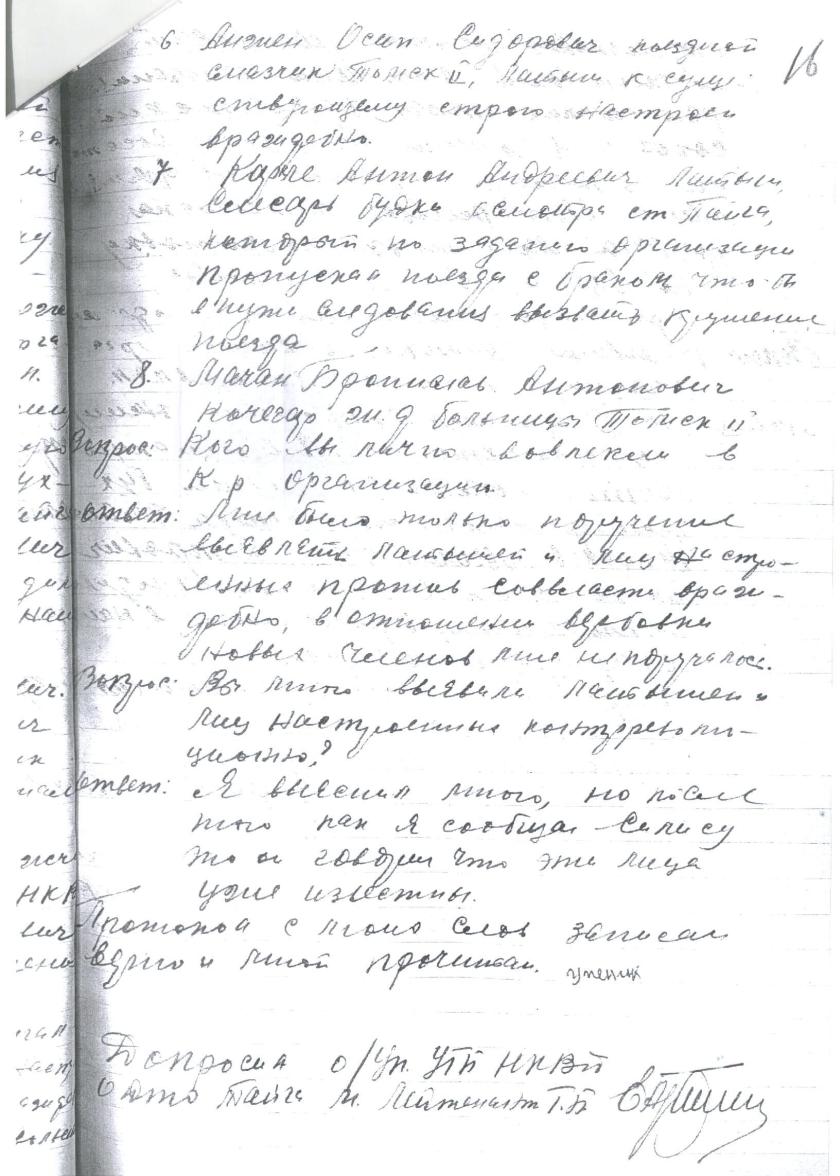 16
6 Анжен Осип Сидорович поездной
смазчик Томск II, латыш к суще
ствующему строю настроен
враждебно.
7 Карче Антон Андреевич латыш,
слесарь будки осмотра ст Тайга,
который по заданию организации
пропускал поезда с браком что-бы
в пути следования вызвать крушение
поезда
8. Мачан Бронислав Антонович
Кочегар жд больницы Томск II
Вопрос: Кого вы лично вовлекли в
К р организацию
Ответ: Мне было только поручение
выявлять латышей и лиц настро-
енных против соввласти враж-
дебно, в отношении вербовки
новых членов мне не поручалось.
Вопрос: Вы много выявили латышей и
лиц настроенных контрреволю-
ционно?
Ответ: Я выяснил много, но после
того как я сообщал
то он говорил что эти лица
уже известны.
Протокол с моих слов записан
верно и мной прочитан.
Допросил о/уп. НКВД
Тайга м. лейтенант Г.Б